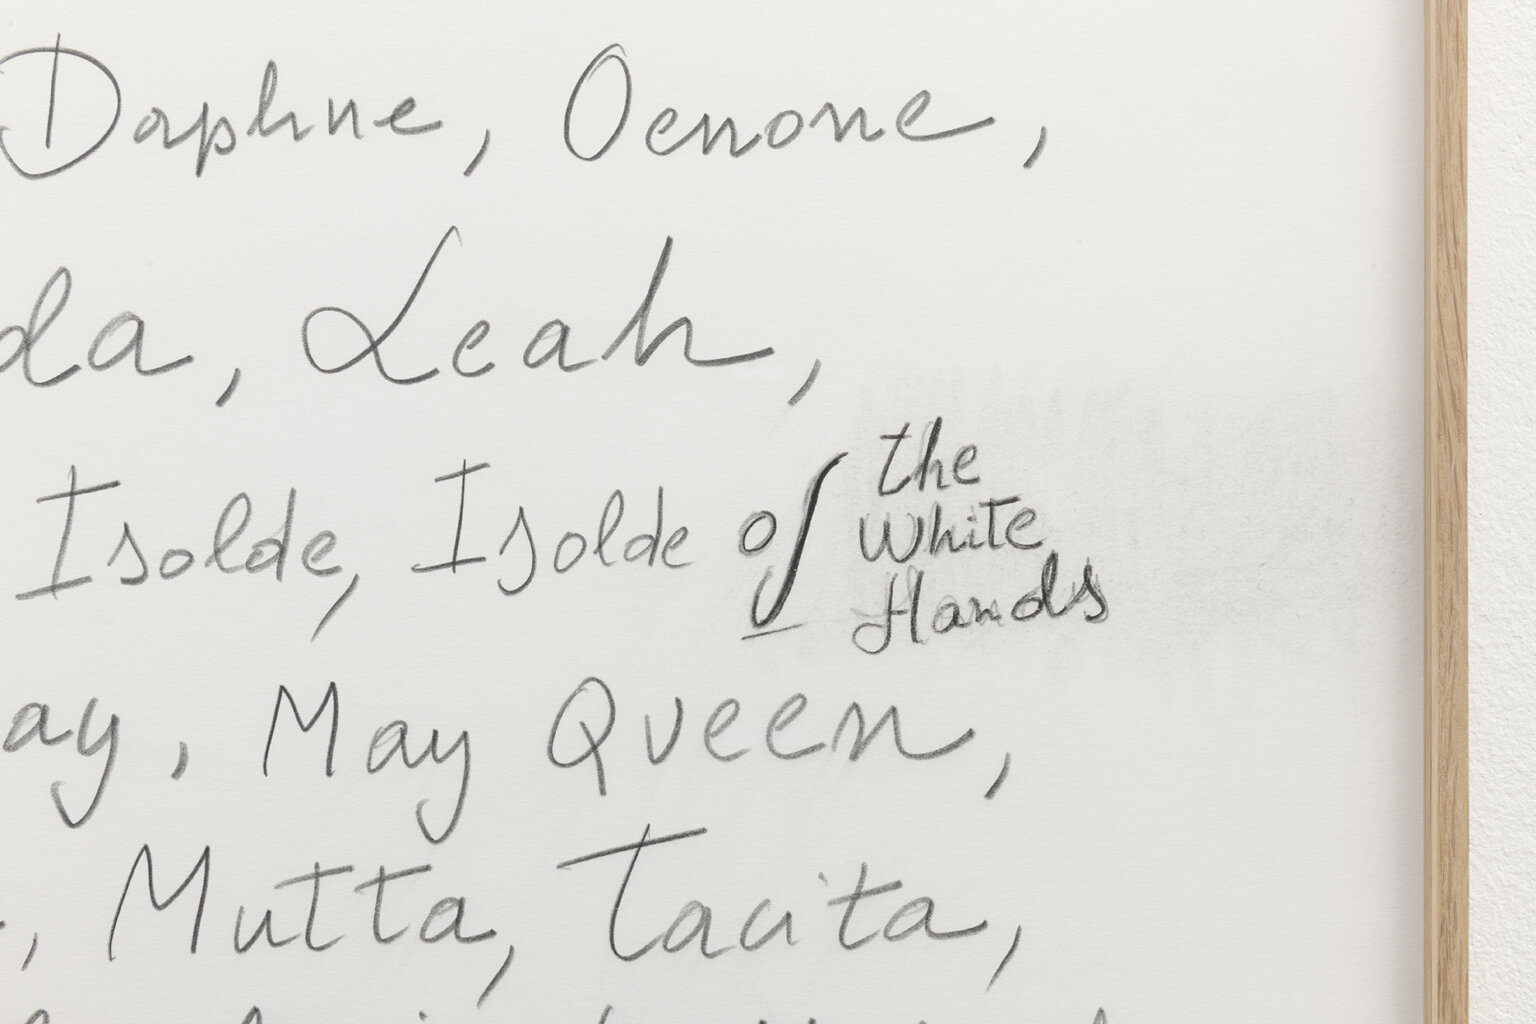 Daphne, Oenone,
da, Leah,
Isolde, Isolde of the
White
Hands
ay, May Queen,
, Mutta, Tacita,